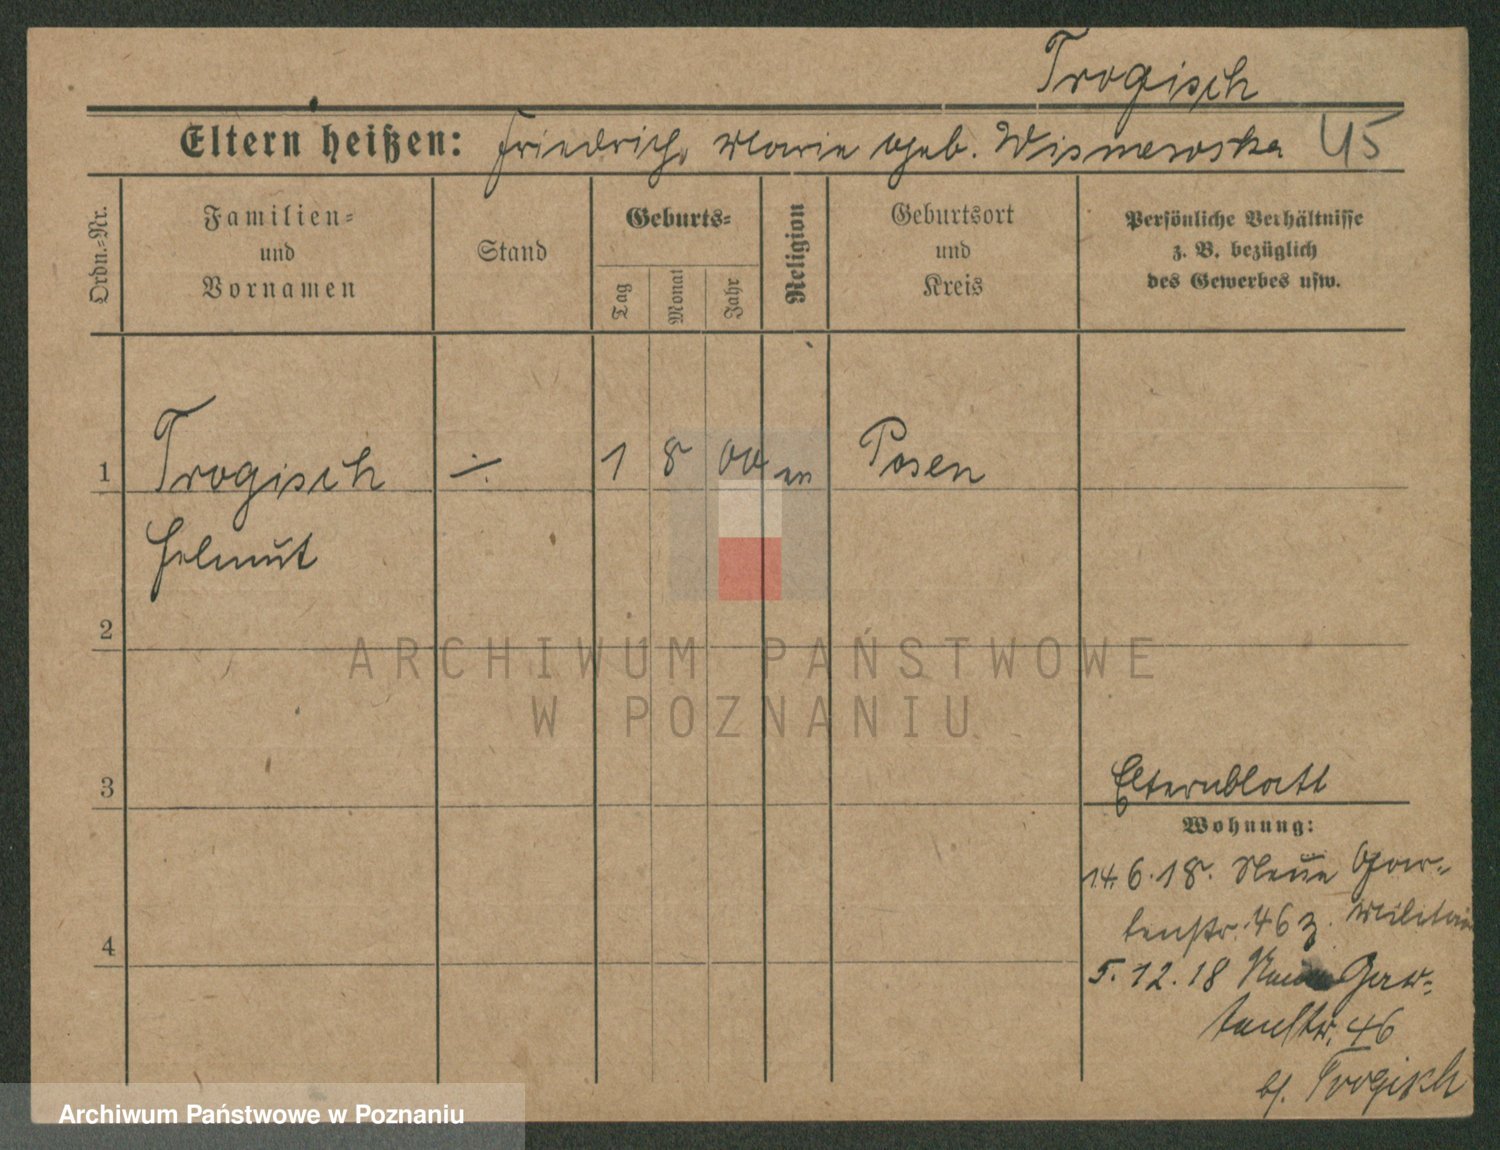 Trogisch
Eltern heißen: Friedrich, Marie geb. Wisnewska 45
Ordn.-Nr.
Familien-
und
Vornamen
Stand
Geburts-
Tag
Monat
Jahr
Religion
Geburtsort
und
Kreis
Persönliche Verhältnisse
z. B. bezüglich
des Gewerbes usw.
1 Trogisch ÷ 1 8 00 ev Posen
Helmut
2
ARCHIWUM PAŃSTWOWE
W POZNANIU
3
Elternblatt
Wohnung:
14.6.18. Neue Gar-
tenstr. 46 z. Militär
4
5.12.18 Neue Gar-
tenstr. 46
bf. Trogisch
Archiwum Państwowe w Poznaniu